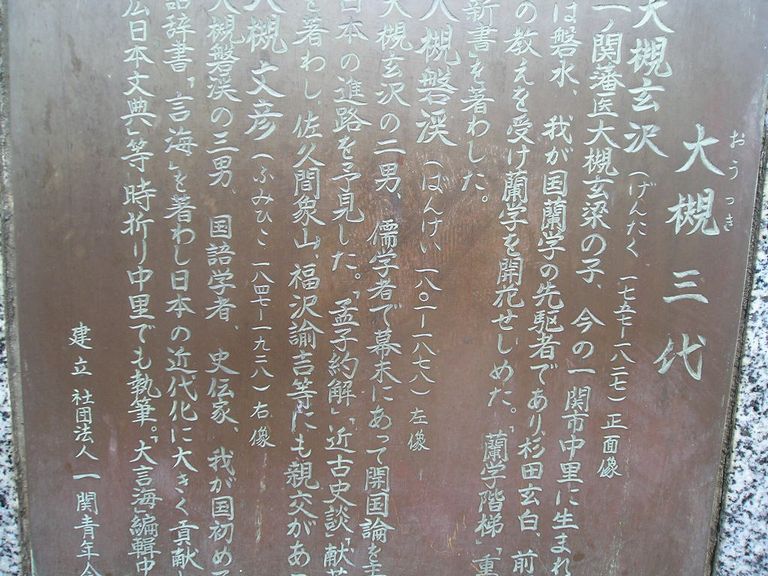 おうつき
大槻三代
大槻玄沢（げんたく 一七五七一八二七）正面像
一ノ関藩医大槻玄梁の子、今の一関市中里に生まれ
は磐水、我が国蘭学の先駆者であり、杉田玄白、前
の教えを受け蘭学を開花せしめた。「蘭学階梯」「重
新書」を著わした。
大槻磐渓（ばんけい 一八〇一一八七八）左像
大槻玄沢の二男、儒学者で幕末にあって開国論を主
日本の進路を予見した。「孟子約解」「近古史談」「献芹
を著わし、佐久間象山、福沢諭吉等にも親交があっ
大槻文彦（ふみひこ 一八四七一一九二八）右像
大槻磐渓の三男、国語学者、史伝家、我が国初めて
語辞書「言海」を著わし日本の近代化に大きく貢献し
広日本文典」等時折り中里でも執筆。「大言海」編輯中
建立 社団法人 一関青年会